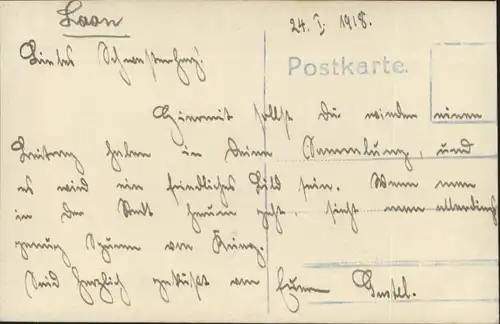 Laon
24. I. 1918.
Liebes Schwesterherz!
Postkarte.
Hiermit sollst Du wieder einen
Beitrag haben in Deine Sammlung, und
es wird ein friedliches Bild sein. Wenn man
in der Stadt herum geht, sieht man allerdings
genug Spuren vom Krieg.
Seid herzlich geküßt von Eurem Gustel.